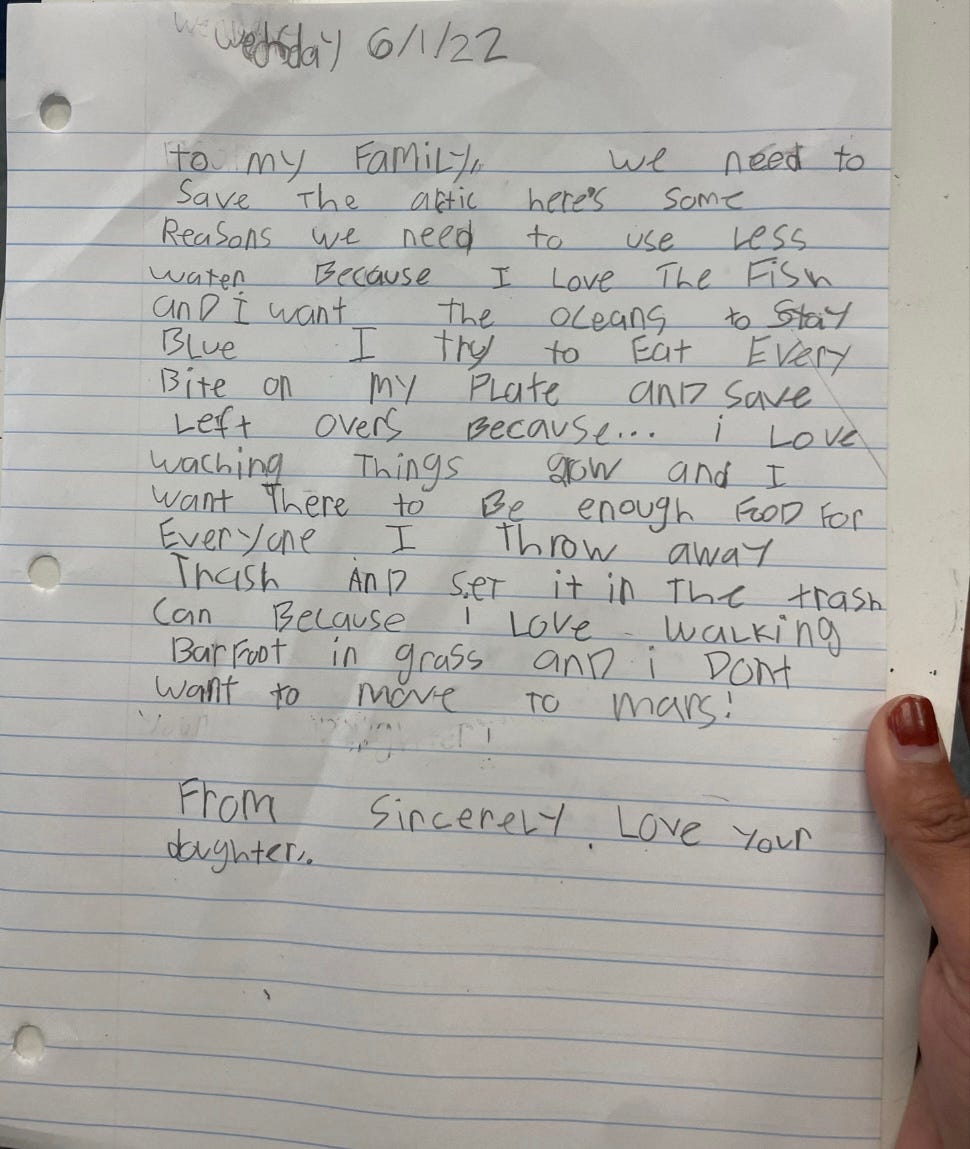 Wednsday 6/1/22
to my Family,, we need to
Save The arctic here's some
Reasons we need to use Less
water Because I Love The Fish
anD I want The oceans to Stay
BLue I try to Eat EVery
Bite on my PLate anD save
Left overs Because... i Love
waching Things grow and I
want There to Be enough FooD For
Everyone I Throw away
Trash AnD set it in The trash
Can Because I Love walking
BarFoot in grass anD i Dont
want to move to mars!
From Sincerely, Love your
daughter,.